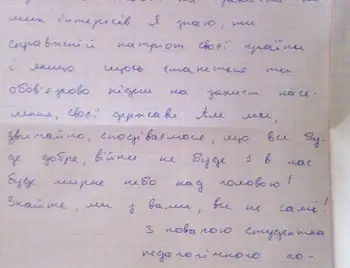 них інтересів. Я знаю, ти
справжній патріот своєї країни
і якщо щось станеться ти
обов'язково підеш на захист насе-
лення, своєї держави. Але ми,
звичайно, сподіваємося, що все бу-
де добре, війни не буде і в нас
буде мирне небо над головою!
Знайте, ми з вами, ви не самі!
З повагою студентка
педагогічного ко-